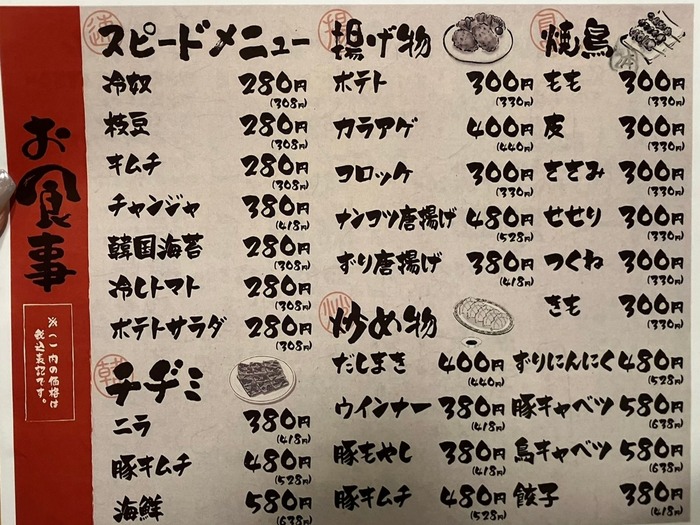 お食事
※（ ）内の価格は
税込表記です。
速
スピードメニュー
冷奴 280円
(308円)
枝豆 280円
(308円)
キムチ 280円
(308円)
チャンジャ 380円
(418円)
韓国海苔 280円
(308円)
冷しトマト 280円
(308円)
ポテトサラダ 280円
(308円)
韓
チヂミ
ニラ 380円
(418円)
豚キムチ 480円
(528円)
海鮮 580円
(638円)
揚
揚げ物
ポテト 300円
(330円)
カラアゲ 400円
(440円)
コロッケ 300円
(330円)
ナンコツ唐揚げ 480円
(528円)
ずり唐揚げ 380円
(418円)
焼鳥
2本
もも 300円
(330円)
皮 300円
(330円)
ささみ 300円
(330円)
せせり 300円
(330円)
つくね 300円
(330円)
きも 300円
(330円)
炒
炒め物
だしまき 400円
(440円)
ウインナー 380円
(418円)
豚もやし 380円
(418円)
豚キムチ 480円
(528円)
ずりにんにく 480円
(528円)
豚キャベツ 580円
(638円)
鳥キャベツ 580円
(638円)
餃子 380円
(418円)